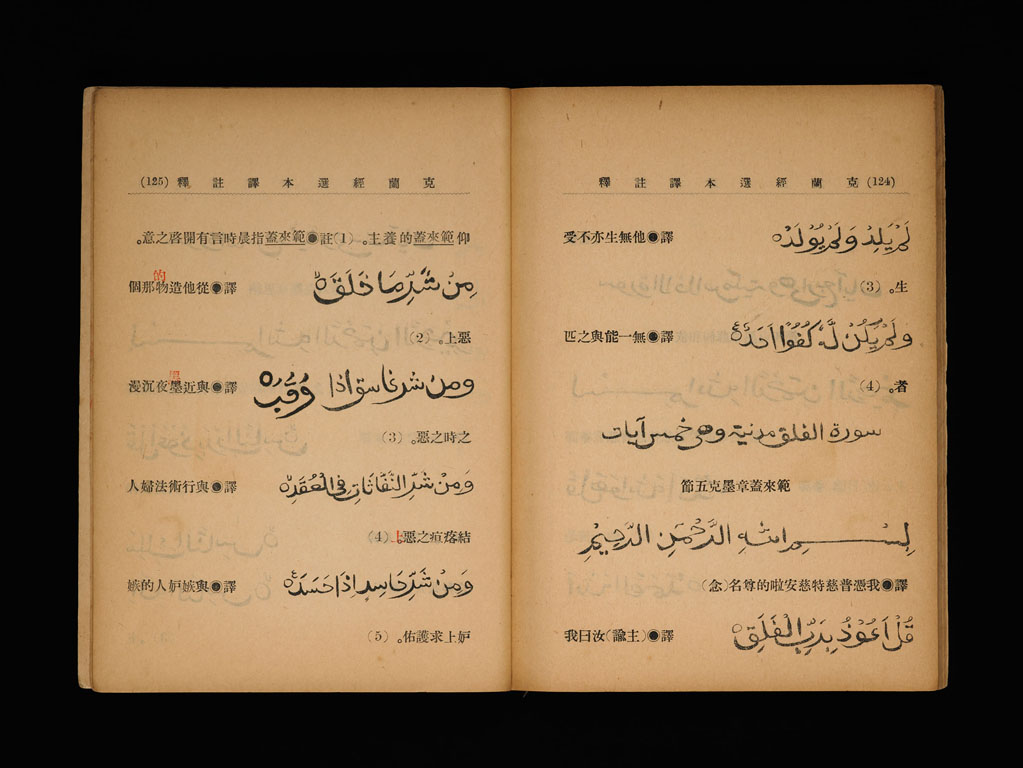 (124) 克蘭經選本譯註釋
لَمْ يَلِدْ وَلَمْ يُولَدْ 譯●他無生亦不受
生。(3)
وَلَمْ يَكُنْ لَّهُ كُفُوًا اَحَدٌ 譯●無一能與之匹
者。(4)
سورة الفلق مدنية وهى خمس آيات
範來蓋章墨克五節
بِسْمِ اللّٰهِ الرَّحْمٰنِ الرَّحِيْمِ
譯●我憑普慈特慈安啦的尊名(念)
قُلْ اَعُوْذُ بِرَبِّ الْفَلَقِ 譯●(主諭)汝曰我
克蘭經選本譯註釋 (125)
仰範來蓋的養主。(1)註●範來蓋指晨時言有開啓之意。
مِنْ شَرِّ مَا خَلَقَ 譯●從他造物的那個
惡上。(2)
وَمِنْ شَرِّ غَاسِقٍ اِذَا وَقَبَ 譯●與近墨夜沉漫
黑
之時之惡。(3)
وَمِنْ شَرِّ النَّفَّاثَاتِ فِى الْعُقَدِ 譯●與行術法婦人
結疙疸之惡上。(4)
وَمِنْ شَرِّ حَاسِدٍ اِذَا حَسَدَ 譯●與嫉妒人的嫉
妒上求護佑。(5)